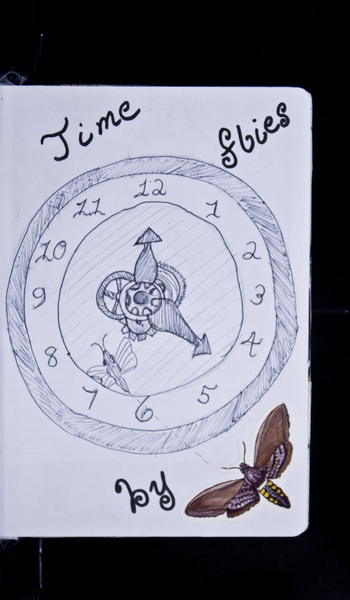 Time flies
12
11 1
10 2
9 3
8 4
7 5
6
by